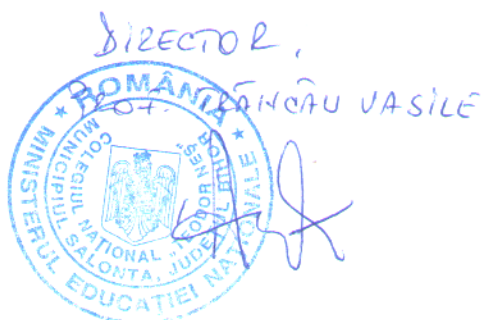 DIRECTOR,
PROF. TRÂNCĂU VASILE
ROMÂNIA
* MINISTERUL EDUCAŢIEI NAŢIONALE *
COLEGIUL NAŢIONAL „TEODOR NEŞ”
MUNICIPIUL SALONTA, JUDEŢUL BIHOR